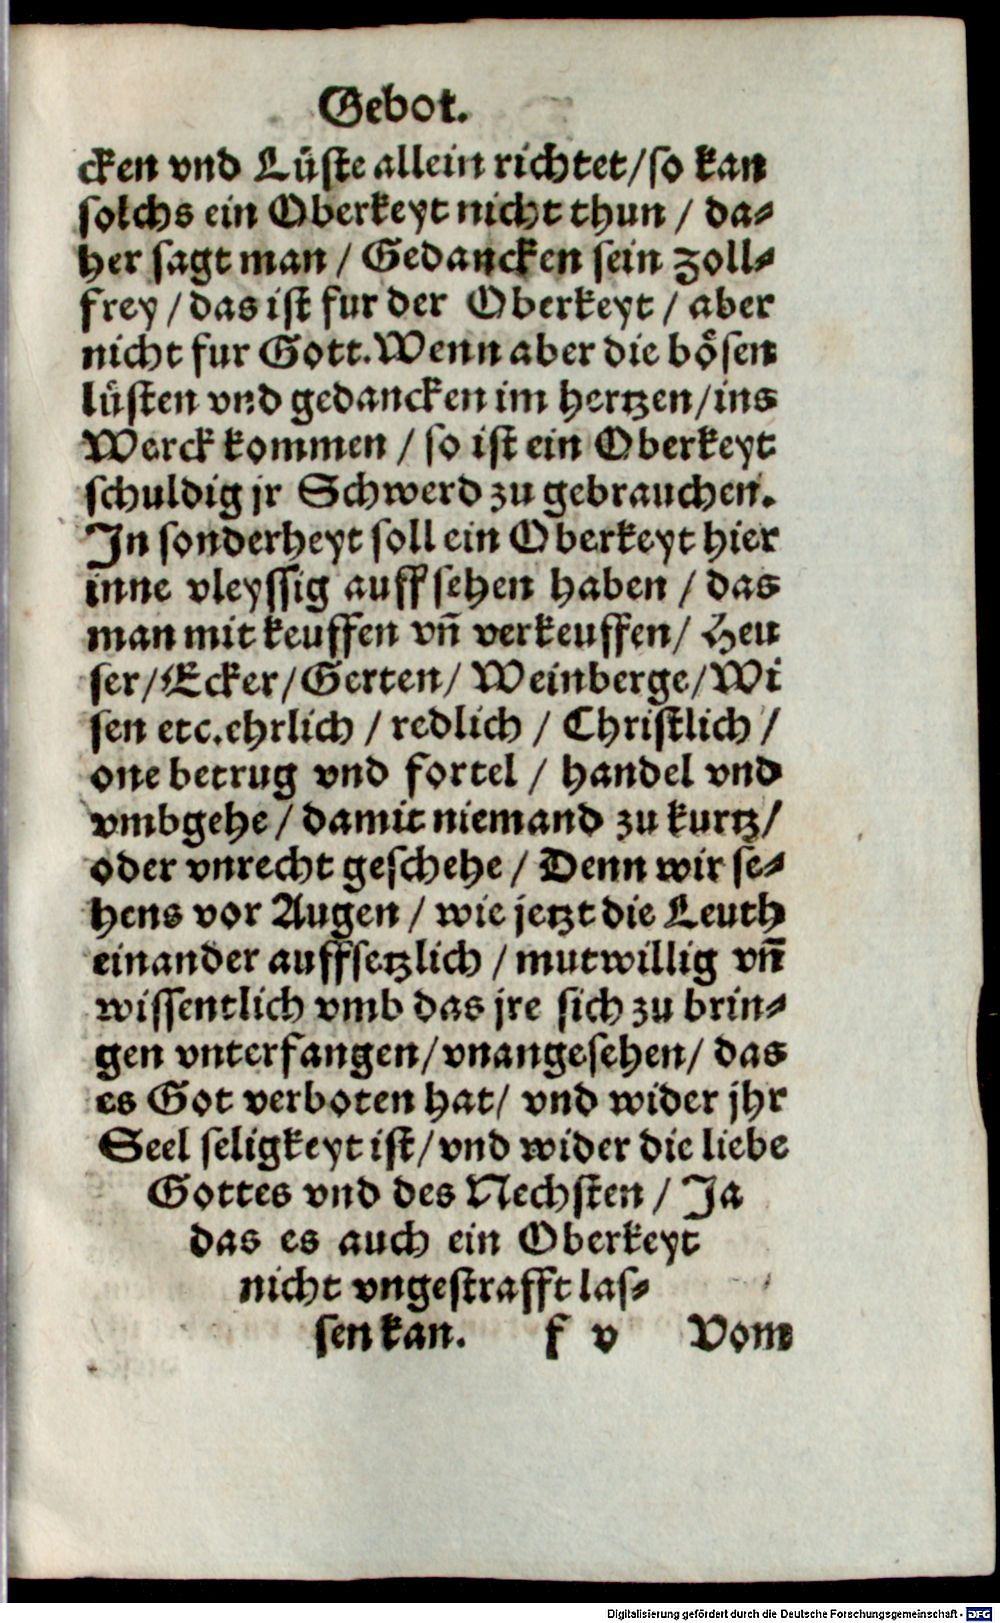 Gebot.
cken vnd Lüſte allein richtet/ſo kan
ſolchs ein Oberkeyt nicht thun / da⸗
her ſagt man / Gedancken ſein zoll⸗
frey / das iſt fur der Oberkeyt / aber
nicht fur Gott. Wenn aber die böſen
lüſten vnd gedancken im hertzen/ins
Werck kommen / ſo iſt ein Oberkeyt
ſchuldig jr Schwerd zu gebrauchen.
In ſonderheyt ſoll ein Oberkeyt hier
inne vleyſſig auff ſehen haben / das
man mit keuffen vñ verkeuffen/ Heu
ſer/Ecker/Gerten/ Weinberge/Wi
ſen etc. ehrlich / redlich / Chriſtlich /
one betrug vnd fortel / handel vnd
vmbgehe / damit niemand zu kurtz/
oder vnrecht geſchehe / Denn wir ſe⸗
hens vor Augen / wie jetzt die Leuth
einander auffſetzlich / mutwillig vñ
wiſſentlich vmb das jre ſich zu brin⸗
gen vnterfangen/vnangeſehen/ das
es Got verboten hat/ vnd wider jhr
Seel ſeligkeyt iſt/vnd wider die liebe
Gottes vnd des Nechſten / Ja
das es auch ein Oberkeyt
nicht vngeſtrafft laſ⸗
ſen kan. f v Vom
Digitalisierung gefördert durch die Deutsche Forschungsgemeinschaft - DFG